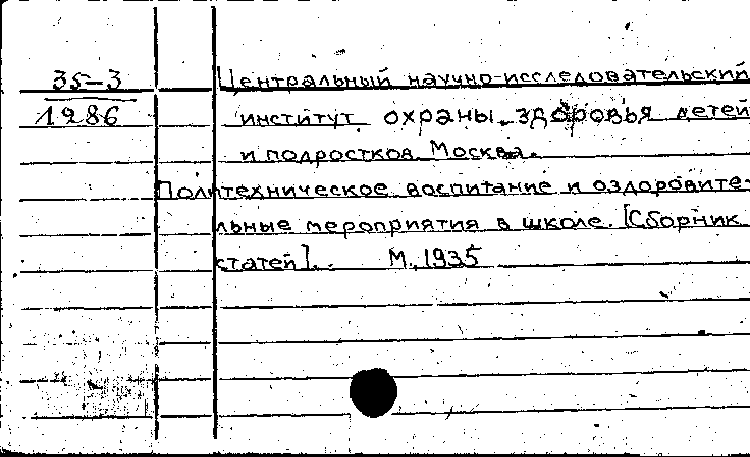 35-3
1286
Центральный научно-исследовательский
институт охраны здоровья детей
и подростков. Москва.
Политехническое воспитание и оздоровите-
льные мероприятия в школе. [Сборник
статей]. М., 1935